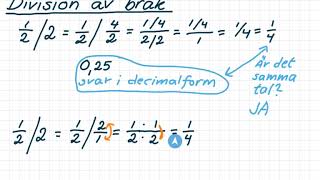 Division av bråk
1/2 / 2 = 1/2 / 4/2 = 1/4/2/2 = 1/4/1 = 1/4 = 1/4
0,25
svar i decimalform
Är det
samma
tal?
JA
1/2 / 2 = 1/2 / 2/1 = 1·1/2·2 = 1/4
A